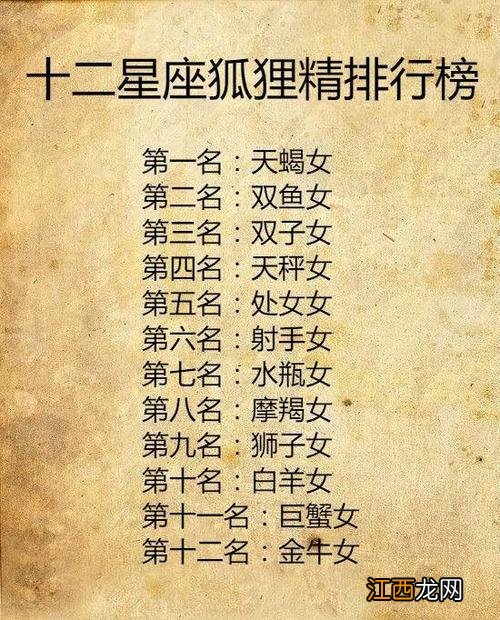 十二星座狐狸精排行榜
第一名：天蝎女
第二名：双鱼女
第三名：双子女
第四名：天秤女
第五名：处女女
第六名：射手女
第七名：水瓶女
第八名：摩羯女
第九名：狮子女
第十名：白羊女
第十一名：巨蟹女
第十二名：金牛女
江西龙网